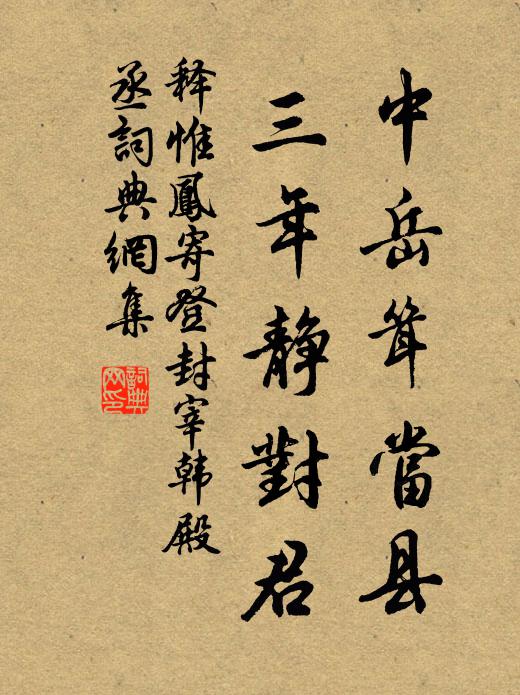 中岳耸當县
三年静對君
释惟鳳寄登封宰韩殿
丞詞典網集
詞典
网印